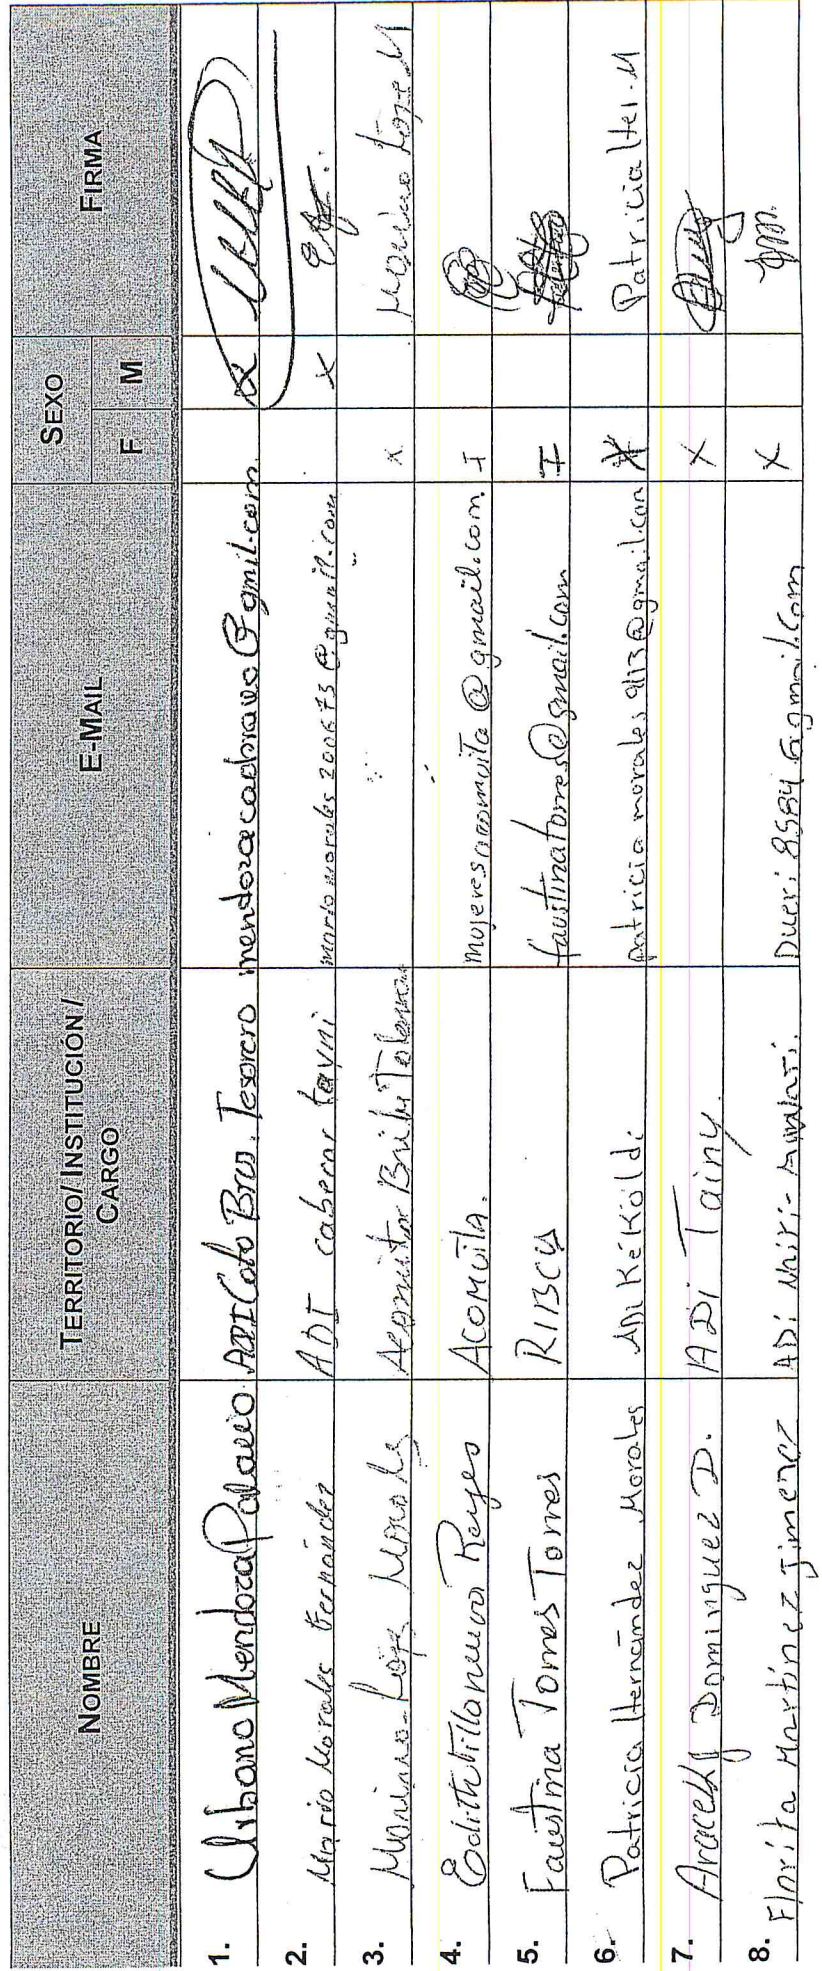 NOMBRE TERRITORIO/ INSTITUCIÓN / CARGO E-MAIL SEXO F M FIRMA
1. Urbano Mendoza Palacio ADI Coto Brus. Tesorero mendozacadbravo@gmil.com x
2. Mario Morales Fernández ADI cabecar tayni mariomorales200673@gmail.com x
3. Morales x
4. Edith Villanueva Reyes Acomuita. mujeresacomuita@gmail.com F
5. Faustina Torres Torres RIBCA faustinatorres@gmail.com F
6. Patricia Hernández Morales ADI KéKöldi patricia morales 9113@gmail.com X Patricia Her. M
7. Aracelly Dominguez D. ADi Tainy. X
8. Florita Martínez Jimenez ADi X